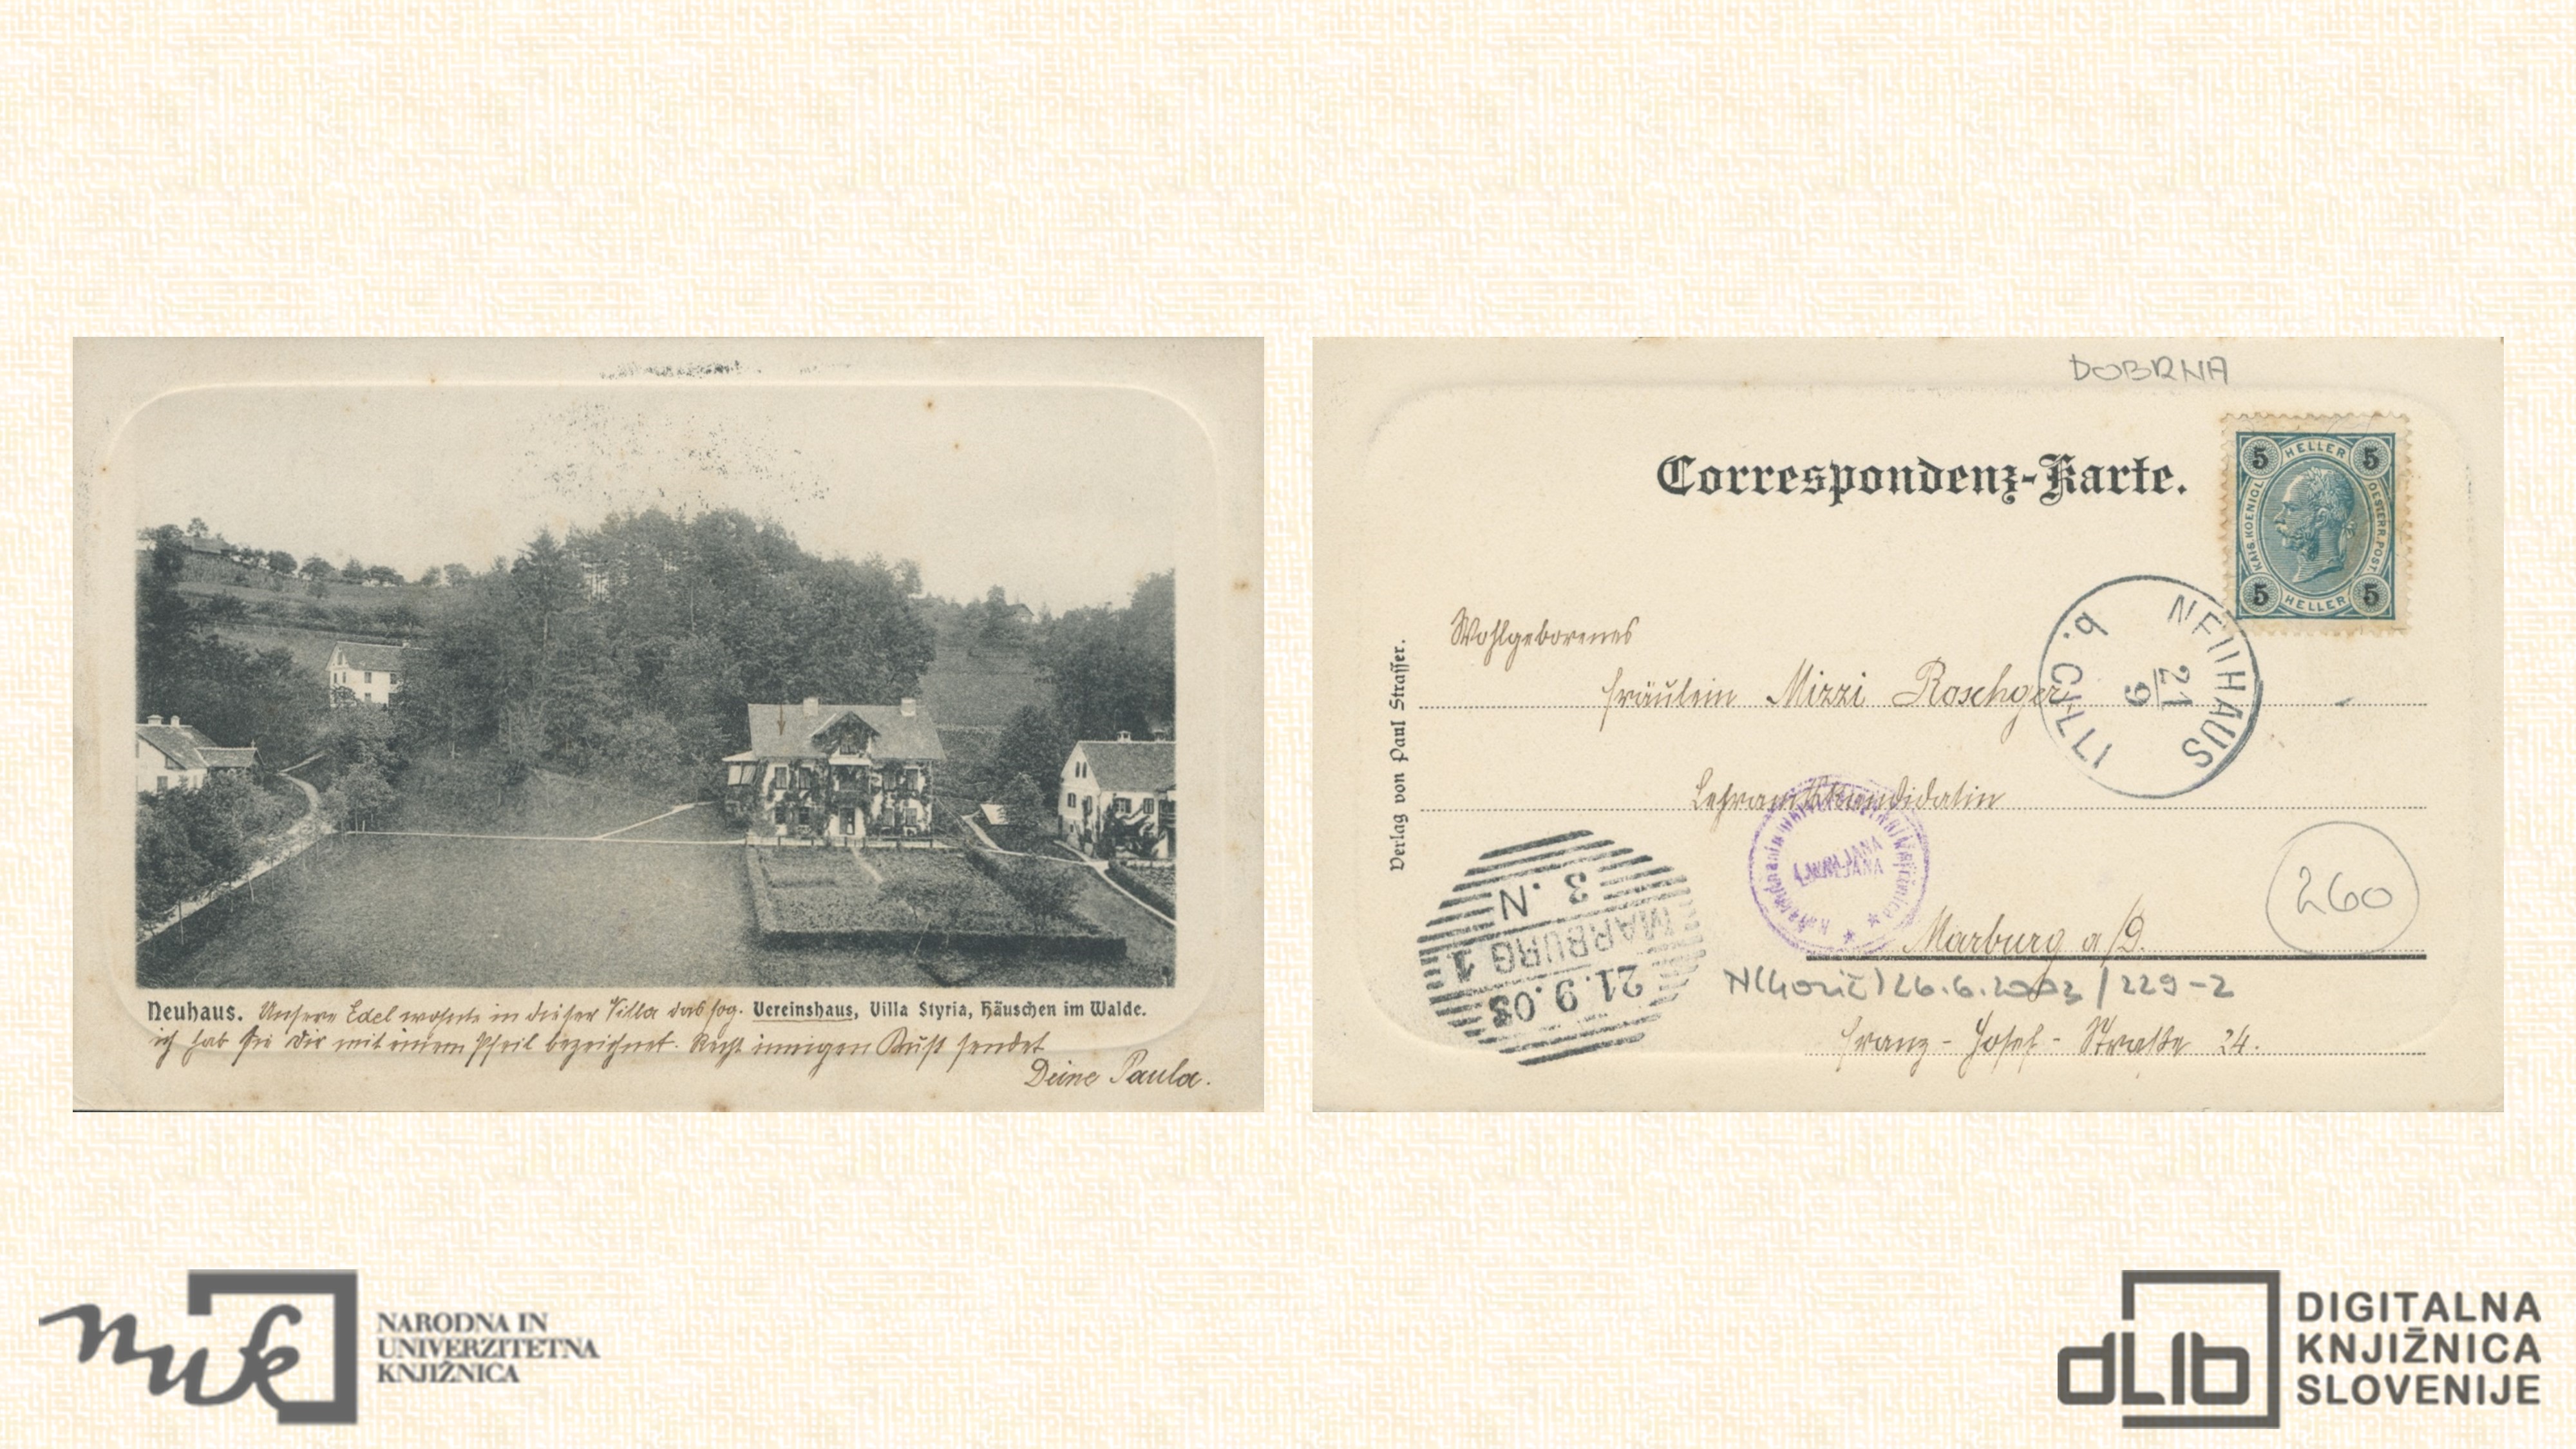 Neuhaus. Unsere Edel wohnte in dieser Villa das sog. Vereinshaus, Villa Styria, Häuschen im Walde.
ich hab sie Dir mit einem Pfeil bezeichnet. Recht innigen Kuß sendet
Deine Paula.
DOBRNA
Correspondenz-Karte.
5 HELLER 5
KAIS. KOENIGL. OESTERR. POST.
5 HELLER 5
NEUHAUS b. CILLI
21
9
Wohlgeborenes
Fräulein Mizzi Roschger
Lehramtskandidatin
Verlag von Paul Strasser.
Narodna in univerzitetna knjižnica
LJUBLJANA
3. N
MARBURG 1
21.9.03
260
Marburg a/D.
N(Gorič) 26.6.2003/229-2
Franz-Josef-Straße 24.
nuk
NARODNA IN
UNIVERZITETNA
KNJIŽNICA
dLib
DIGITALNA
KNJIŽNICA
SLOVENIJE